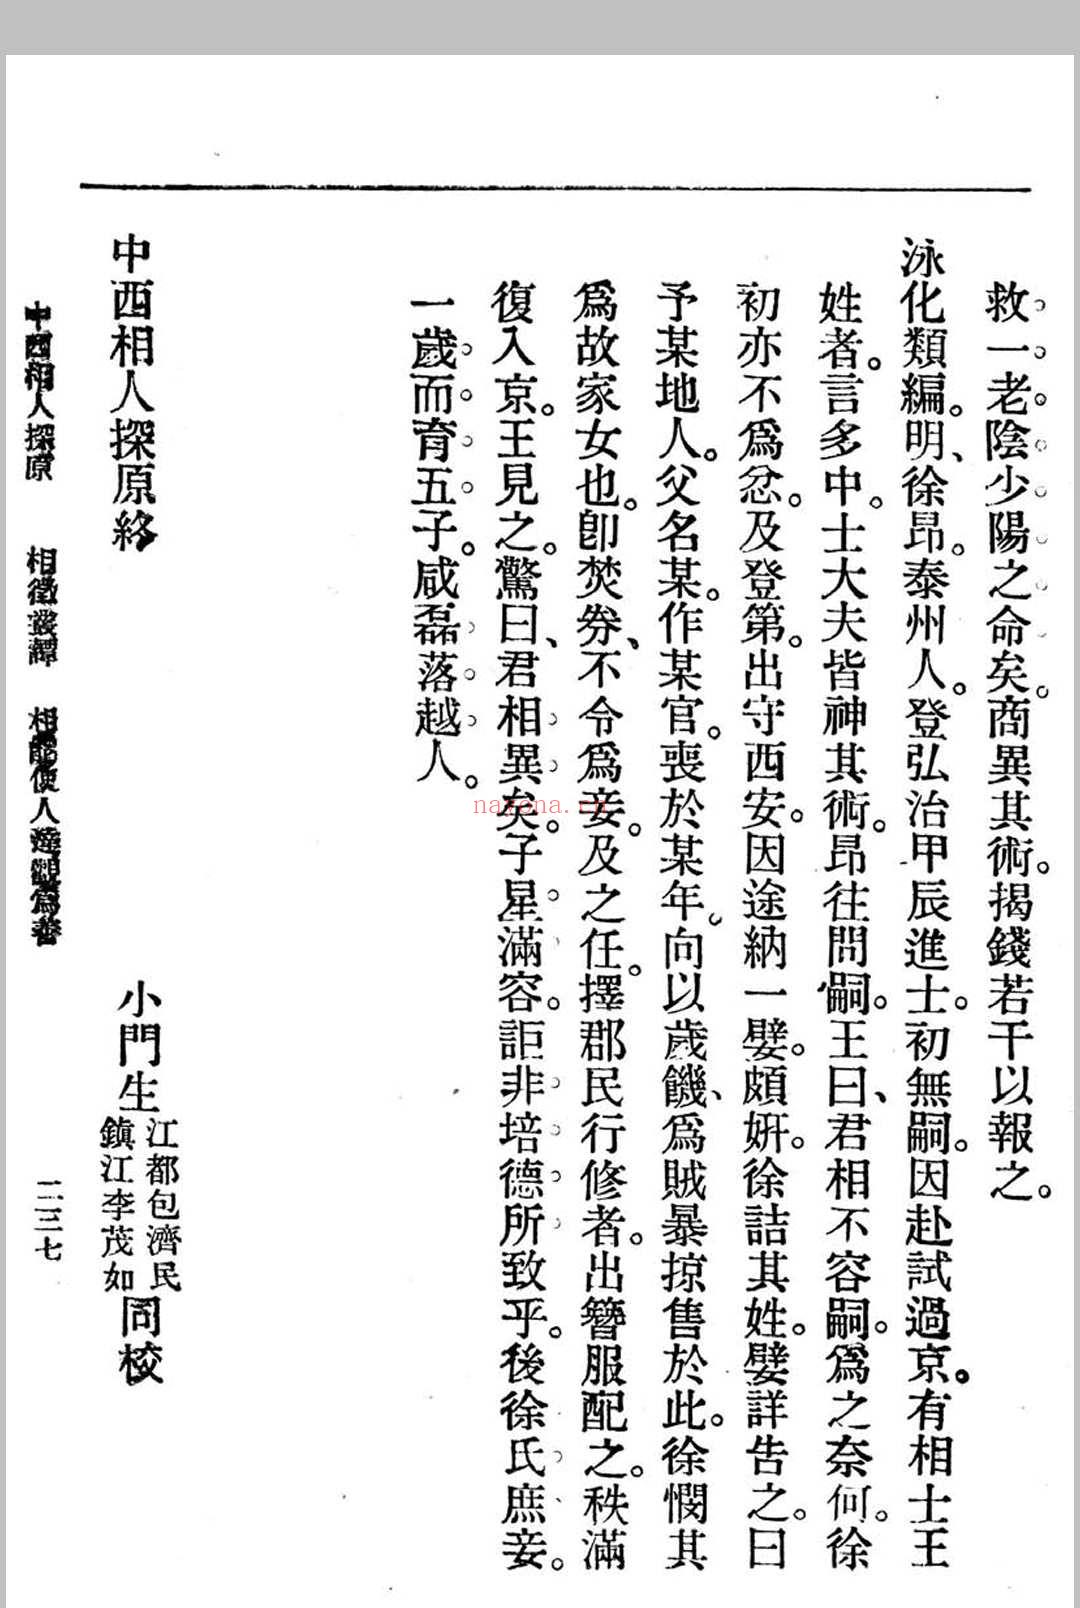 救一老陰少陽之命矣。商異其術。揭錢若干以報之。
泳化類編。明、徐昂。泰州人。登弘治甲辰進士。初無嗣。因赴試過京。有相士王
姓者。言多中。士大夫皆神其術。昂往問嗣。王曰、君相不容嗣。爲之奈何。徐
初亦不爲忿。及登第。出守西安。因途納一嬖。頗妍。徐詰其姓。嬖詳告之。曰
予某地人。父名某。作某官。喪於某年。向以歲饑、爲賊暴掠售於此。徐憫其
爲故家女也。卽焚券、不令爲妾。及之任。擇郡民行修者。出簪服配之。秩滿
復入京。王見之。驚曰、君相異矣。子星滿容。詎非培德所致乎。後徐氏庶妾。
一歲而育五子。咸磊落越人。
中西相人探原終
小門生江都包濟民鎭江李茂如同校
中西相人探原 相徵叢譚 相能使人達觀爲善
二三七
nayona.cn